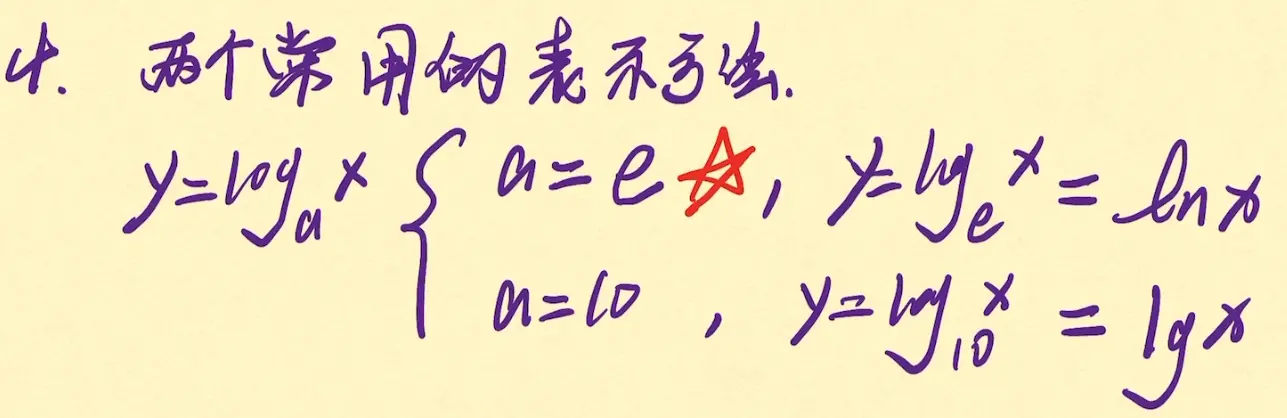 4. 两个常用的表示方法.
y=logₐx { a=e☆, y=logₑx=lnx
a=10, y=log₁₀x=lgx